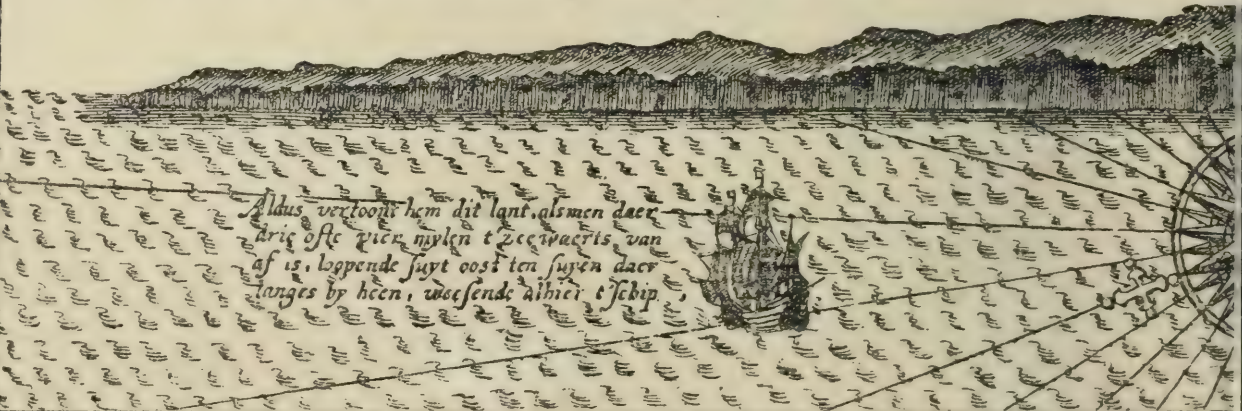 Aldus vertoont hem dit lant, alsmen daer
drie ofte vier mylen t'zeewaerts van
af is, loopende suyt oost ten suyen daer
langes by heen, weesende alhier t'schip,